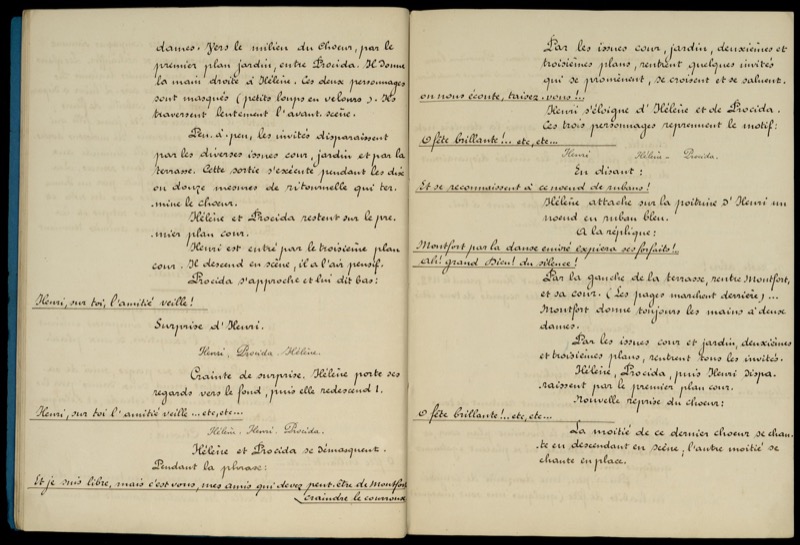 dames. Vers le milieu du Choeur, par le
premier plan jardin, entre Procida. Il donne
la main droite à Hélène. Ces deux personnages
sont masqués (petits loups en velours). Ils
traversent lentement l'avant-scène.
Peu-à-peu, les invités disparaissent
par les diverses issues cour, jardin et par la
terrasse. Cette sortie s'exécute pendant les dix
ou douze mesures de ritournelle qui ter-
-mine le choeur.
Hélène et Procida restent sur le pre-
-mier plan cour.
Henri est entré par le troisième plan
cour. Il descend en scène, il a l'air pensif.
Procida s'approche et lui dit bas:
Henri, sur toi, l'amitié veille!
Surprise d'Henri.
Henri. Procida. Hélène.
Crainte de surprise. Hélène porte ses
regards vers le fond, puis elle redescend 1.
Henri, sur toi l'amitié veille... etc, etc...
Hélène. Henri. Procida.
Hélène et Procida se démasquent.
Pendant la phrase:
Et je suis libre, mais c'est vous, mes amis qui devez peut-être de Montfort
craindre le courroux
Par les issues cour, jardin, deuxièmes et
troisièmes plans, rentrent quelques invités
qui se promènent, se croisent et se saluent.
on nous écoute, taisez-vous!...
Henri s'éloigne d'Hélène et de Procida.
Ces trois personnages reprennent le motif:
O fête brillante!... etc, etc...
Henri Hélène - Procida.
En disant:
Et se reconnaissent à ce noeud de rubans!
Hélène attache sur la poitrine d'Henri un
noeud en ruban bleu.
A la réplique:
Montfort par la danse enivré expiera ses forfaits!..
Ah! grand Dieu! du silence!
Par la gauche de la terrasse, rentre Montfort,
et sa cour. (Les pages marchent derrière)...
Montfort donne toujours les mains à deux
dames.
Par les issues cour et jardin, deuxièmes
et troisièmes plans, rentrent tous les invités.
Hélène, Procida, puis Henri dispa-
-raissent par le premier plan cour.
Nouvelle reprise du choeur:
O fête brillante!.. etc, etc...
La moitié de ce dernier choeur se chan-
-te en descendant en scène, l'autre moitié se
chante en place.